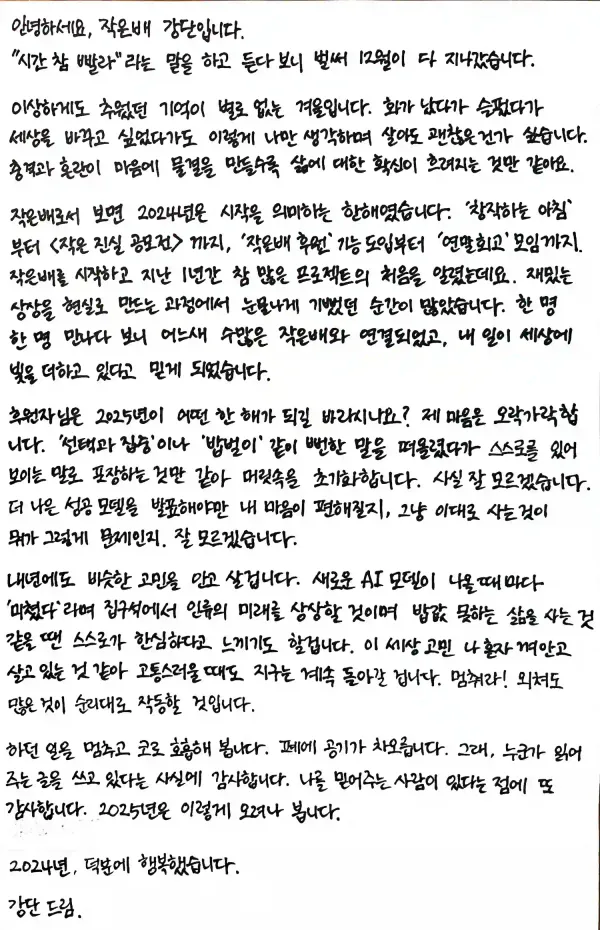 안녕하세요, 작은배 강단입니다.
"시간 참 빨라"라는 말을 하고 듣다 보니 벌써 12월이 다 지나갔습니다.
이상하게도 추웠던 기억이 별로 없는 겨울입니다. 화가 났다가 슬펐다가
세상을 바꾸고 싶었다가도 이렇게 나만 생각하며 살아도 괜찮은건가 싶습니다.
충격과 혼란이 마음에 물결을 만들수록 삶에 대한 확신이 흐려지는 것만 같아요.
작은배로서 보면 2024년은 시작을 의미하는 한해였습니다. '창작하는 아침'
부터 <작은 진실 공모전> 까지, '작은배 후원' 기능 도입부터 '연말회고' 모임까지.
작은배를 시작하고 지난 1년간 참 많은 프로젝트의 처음을 알렸는데요. 재밌는
상상을 현실로 만드는 과정에서 눈물나게 기뻤던 순간이 많았습니다. 한 명
한 명 만나다 보니 어느새 수많은 작은배와 연결되었고, 내 일이 세상에
빛을 더하고 있다고 믿게 되었습니다.
후원자님은 2025년이 어떤 한 해가 되길 바라시나요? 제 마음은 오락가락합
니다. '선택과 집중'이나 '밥벌이' 같이 뻔한 말을 떠올렸다가 스스로를 있어
보이는 말로 포장하는 것만 같아 머릿속을 초기화합니다. 사실 잘 모르겠습니다.
더 나은 성공 모델을 발표해야만 내 마음이 편해질지, 그냥 이대로 사는 것이
뭐가 그렇게 문제인지. 잘 모르겠습니다.
내년에도 비슷한 고민을 안고 살겁니다. 새로운 AI 모델이 나올 때 마다
'미쳤다'라며 집구석에서 인류의 미래를 상상할 것이며 밥값 못하는 삶을 사는 것
같을 땐 스스로가 한심하다고 느끼기도 할겁니다. 이 세상 고민 나 혼자 껴안고
살고 있는 것 같아 고통스러울 때도 지구는 계속 돌아갈 겁니다. 멈춰라! 외쳐도
많은 것이 순리대로 작동할 것입니다.
하던 일을 멈추고 코로 호흡해 봅니다. 폐에 공기가 차오릅니다. 그래, 누군가 읽어
주는 글을 쓰고 있다는 사실에 감사합니다. 나를 믿어주는 사람이 있다는 점에 또
감사합니다. 2025년은 이렇게 오려나 봅니다.
2024년, 덕분에 행복했습니다.
강단 드림.